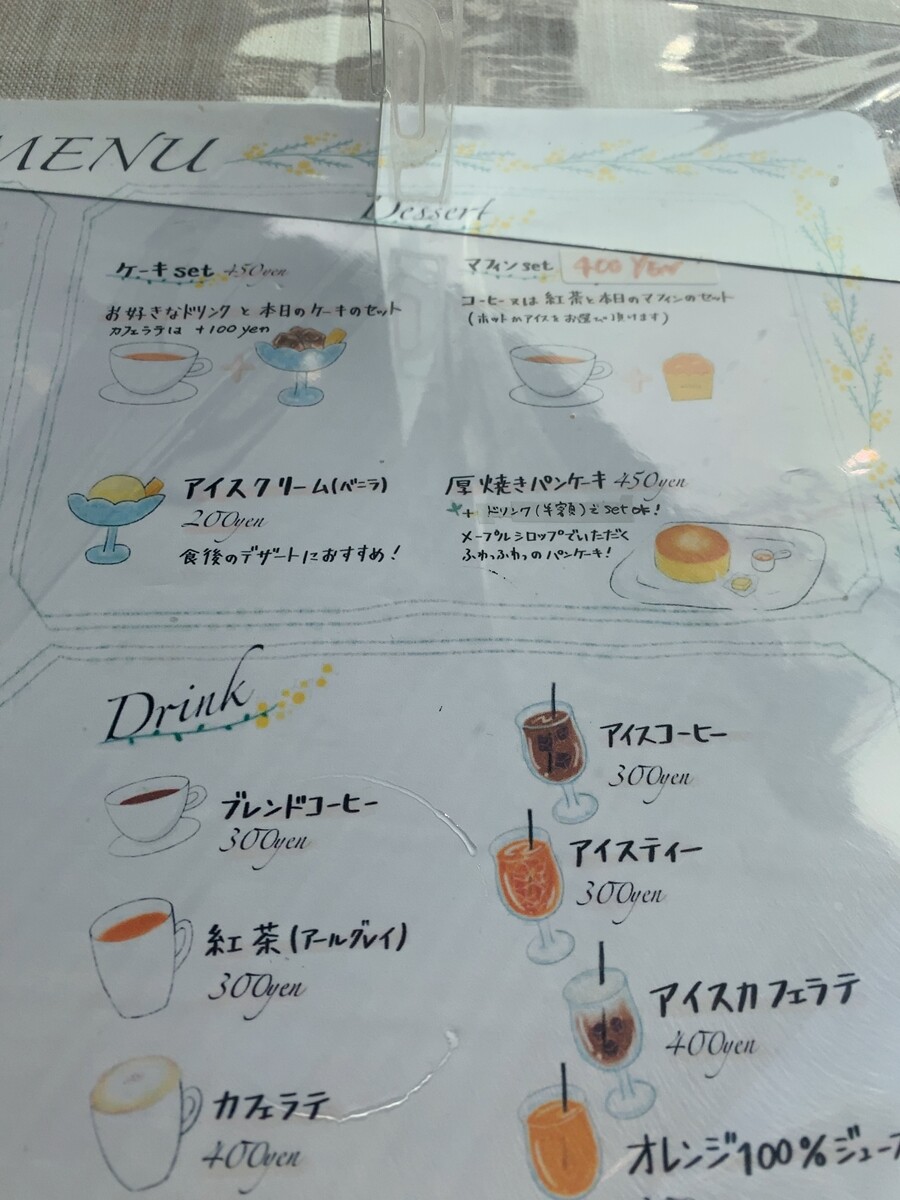 MENU
Dessert
ケーキset 450yen
お好きなドリンクと本日のケーキのセット
カフェラテは +100yen
マフィンset 400 Yen
コーヒー又は紅茶と本日のマフィンのセット
(ホットかアイスをお選び頂けます)
アイスクリーム(バニラ)
200yen
食後のデザートにおすすめ!
厚焼きパンケーキ 450yen
+ ドリンク(半額)でset ok!
メープルシロップでいただく
ふわっふわっのパンケーキ!
Drink
ブレンドコーヒー
300yen
紅茶(アールグレイ)
300yen
カフェラテ
400yen
アイスコーヒー
300yen
アイスティー
300yen
アイスカフェラテ
400yen
オレンジ100%ジュー